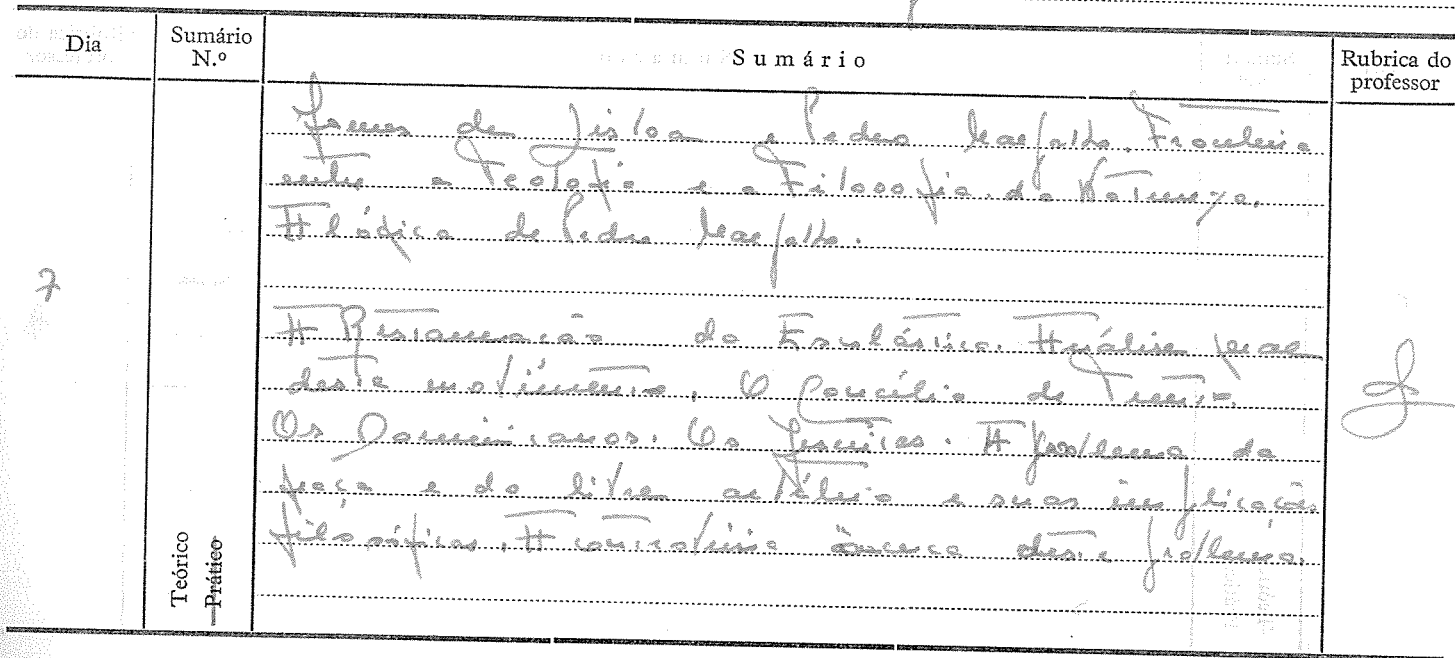 Dia
Sumário N.º
Sumário
Rubrica do professor
Gomes de Lisboa e Pedro Margalho. Fronteira
entre a Teologia e a Filosofia da Natureza.
A lógica de Pedro Margalho.
7
A Restauração da Escolástica. Análise geral
deste movimento. O Concílio de Trento.
Os Dominicanos. Os Jesuítas. A problema da
graça e do livre arbítrio e suas implicações
filosóficas. A controvérsia àcerca deste problema.
Teórico
Prático